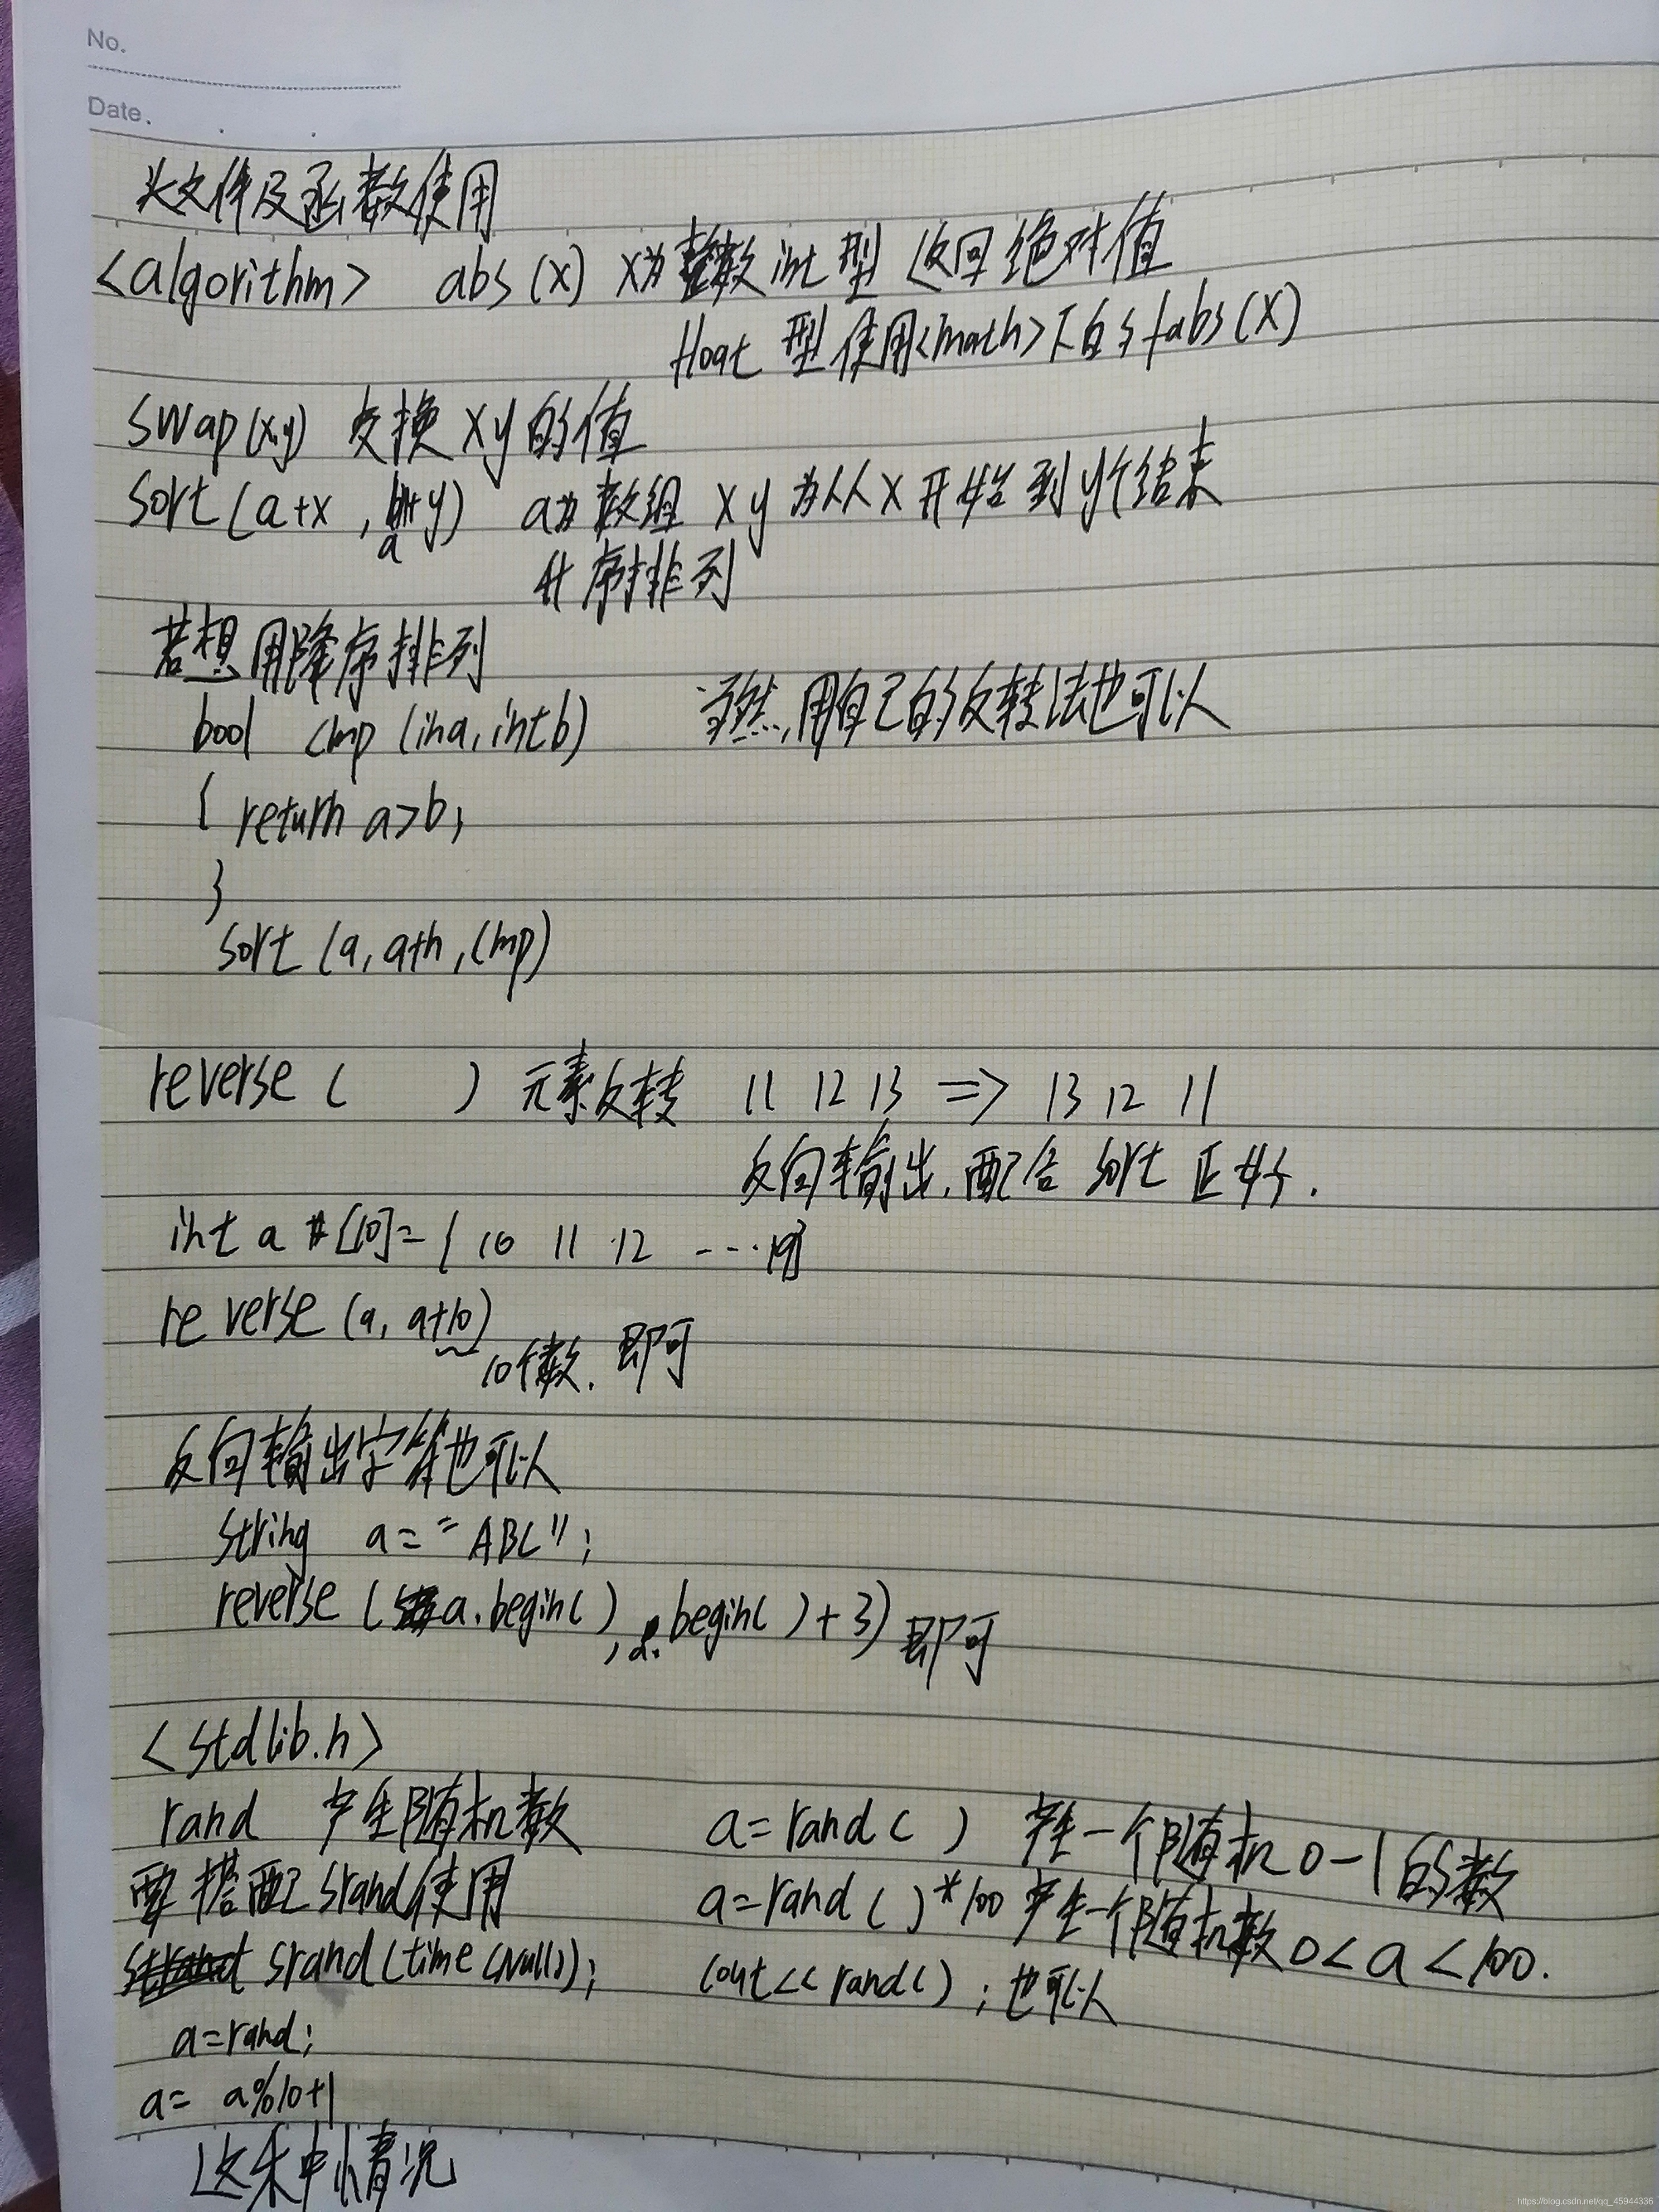 No.
Date.
头文件及函数使用
<algorithm> abs(x) x为整数int型 返回绝对值
float 型使用<math>下的fabs(x)
swap(x,y) 交换xy的值
sort(a+x, a+y) a为数组 xy为从x开始到y个结束
升序排列
若想用降序排列
bool cmp (ina, intb) 当然,用自己的反转法也可以
{ return a>b;
}
sort (a, a+n, cmp)
reverse ( ) 元素反转 11 12 13 => 13 12 11
反向输出,配合 sort 正好.
int a [10]={ 10 11 12 ---19}
reverse (a, a+10)
10个数. 即可
反向输出字符也可以
string a= "ABC";
reverse (a.begin(), a.begin()+3) 即可
<stdlib.h>
rand 产生随机数 a=rand( ) 产生一个随机0-1的数
要搭配srand使用 a=rand( )*100 产生一个随机数 0<a<100.
srand(time(Null)); cout<<rand( ); 也可以
a=rand;
a= a%10+1
这种情况
https://blog.csdn.net/qq_45944336